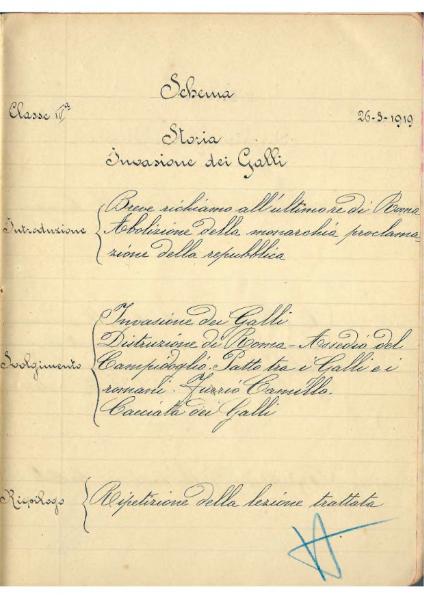 Schema
Classe IVa 26-3-1919
Storia
Invasione dei Galli
Introduzione
Breve richiamo all'ultimo re di Roma
Abolizione della monarchia proclama-
zione della repubblica
Svolgimento
Invasione dei Galli
Distruzione di Roma - Assedio del
Campidoglio. Patto tra i Galli e i
romani. Furio Camillo.
Cacciata dei Galli
Riepilogo
Ripetizione della lezione trattata